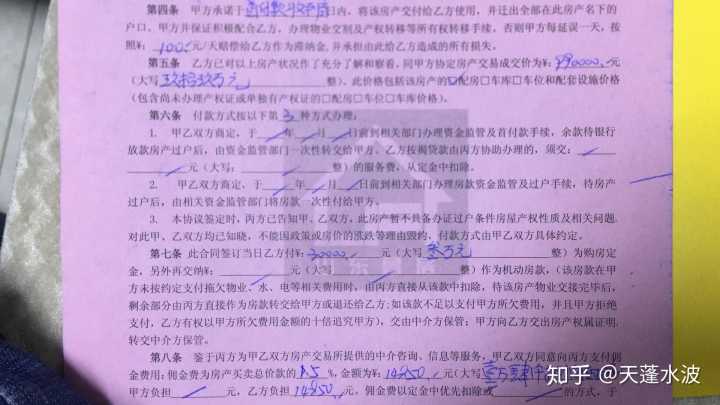 第四条 甲方承诺于 日内，将该房产交付给乙方使用，并迁出全部在此房产名下的
户口。甲方并保证积极配合乙方，办理物业交割及产权转移等所有权转移手续。否则甲方每延误一天，按
照¥：100元/天赔偿给乙方作为滞纳金，并承担由此给乙方造成的所有损失。
第五条 乙方已对以上房产状况作了充分了解和察看。同甲方协定房产交易成交价为¥：990000元
（大写 玖拾玖万元 整）。此价格包括该房产的□配房□车库□车位和配套设施价格
（包含尚未办理产权证或单独有产权证的□配房□车位□车库价格）。
第六条 付款方式按以下第 3 种方式办理：
1. 甲乙双方商定，于 年 月 日前到相关部门办理资金监管及首付款手续，余款待银行
放款房产过户后，由资金监管部门一次性转交给甲方。乙方按揭贷款由丙方协助办理的，须交：
元（大写： 整）的服务费，从定金中扣除。
2. 甲乙双方商定，于 年 月 日前到相关部门办理房款资金监管及过户手续，待房产
过户后，由相关资金监管部门将房款一次性付给甲方。
3. 本协议签定时，丙方已告知甲、乙双方，此房产暂不具备办证过户条件房屋产权性质及相关问题，
对此甲、乙双方均已知晓，不能因政策或房价的涨跌等理由毁约，付款方式由甲乙双方具体约定。
第七条 此合同签订当日乙方付¥：30000元（大写 叁万元 整）为购房定
金，另外再交纳¥： 元（大写 整）作为机动房款，（该房款在甲
方未按约定支付拖欠物业、水、电等相关费用时，由丙方直接从该款中扣除，待该房产物业交接完毕后，
剩余部分由丙方直接作为房款转交给甲方或退还给乙方；如该款不足以支付甲方所欠费用，并且甲方拒绝
支付，乙方有权以甲方所欠费用金额的十倍追究甲方），交由中介方保管；甲方向乙方交出房产权属证明，
转交中介方保管。
第八条 鉴于丙方为甲乙双方房产交易所提供的中介咨询、信息等服务，甲乙双方同意向丙方支付佣
金费用；佣金费为房产买卖总价款的1.5%，金额为¥：14850元（大写
甲方负担 元，乙方负担14850元，佣金费以定金中优先扣除或 的方式，于
知乎 @天蓬水波